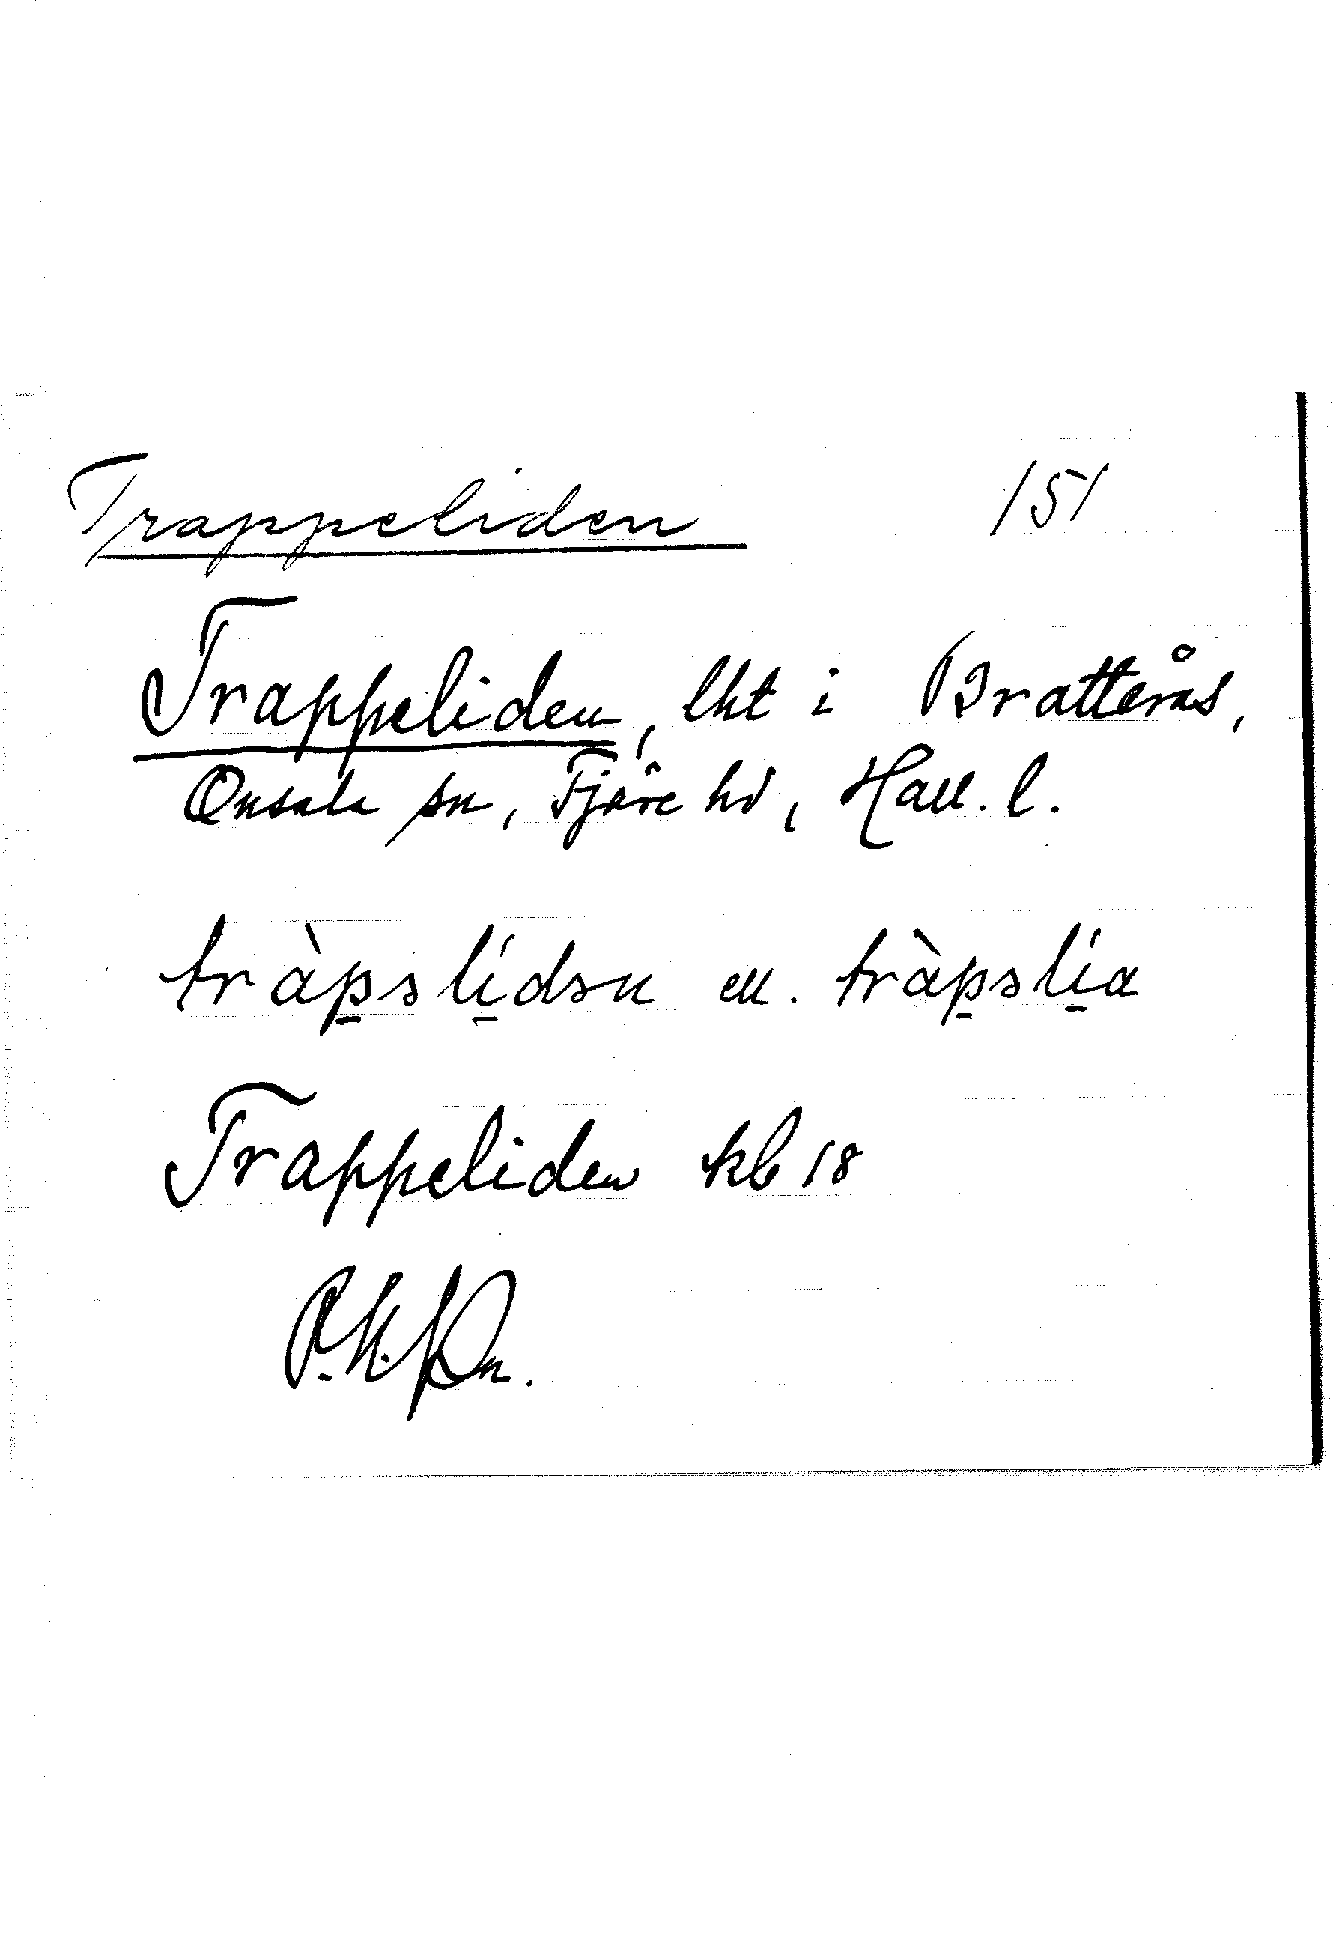 Trappeliden 151
Trappeliden, lht i Bratterås,
Onsala sn, Fjäre hd, Hall. l.
tràpəlídən ell. tràpəlía
Trappeliden kb 18